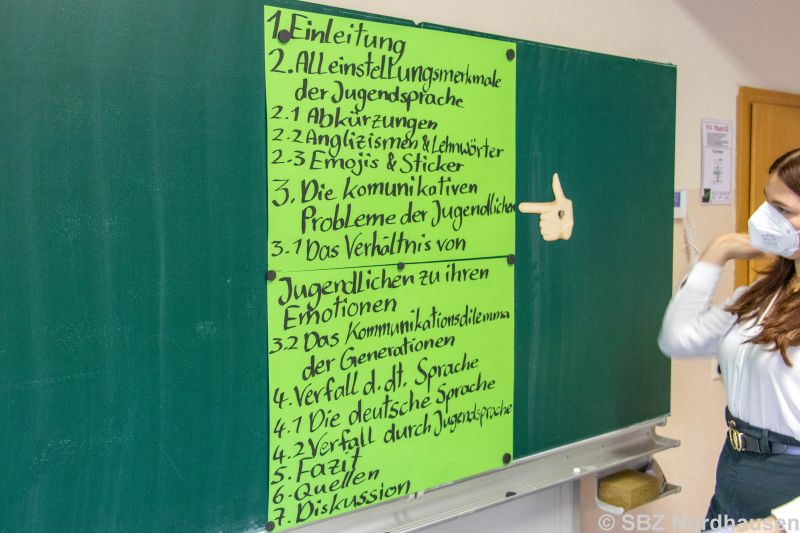 1. Einleitung
2. Alleinstellungsmerkmale
der Jugendsprache
2.1 Abkürzungen
2.2 Anglizismen & Lehnwörter
2.3 Emojis & Sticker
3. Die komunikativen
Probleme der Jugendlichen
3.1 Das Verhältnis von
Jugendlichen zu ihren
Emotionen
3.2 Das Kommunikationsdilemma
der Generationen
4. Verfall d. dt. Sprache
4.1 Die deutsche Sprache
4.2 Verfall durch Jugendsprache
5. Fazit
6. Quellen
7. Diskussion
© SBZ Nordhausen